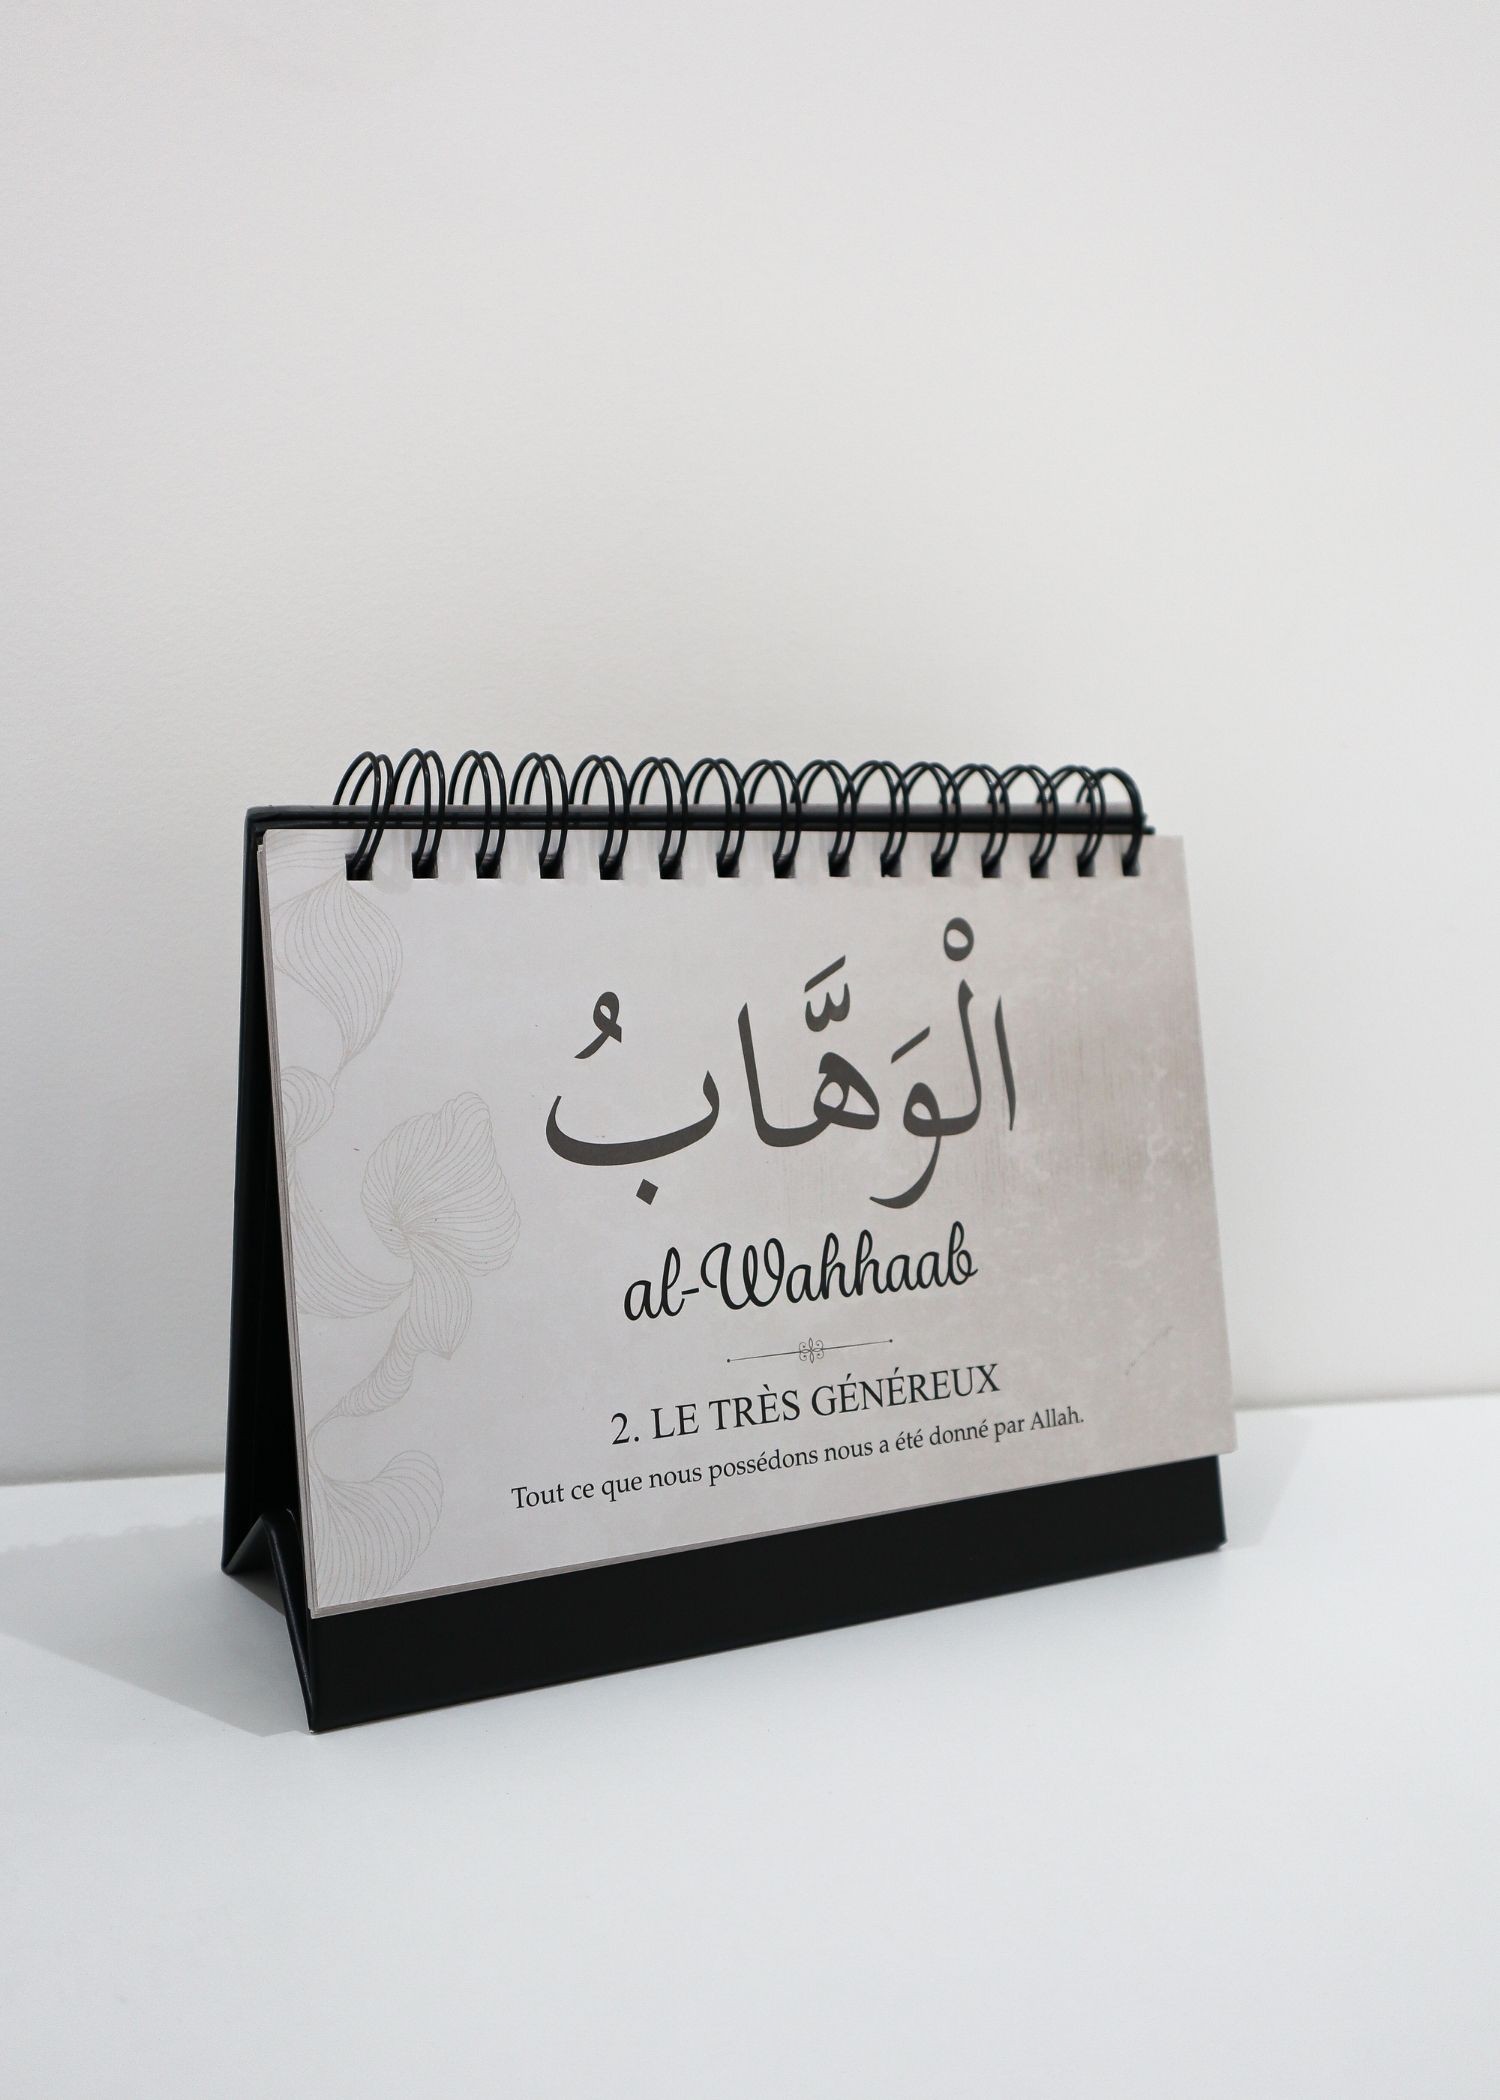 الْوَهَّابُ
al-Wahhaab
2. LE TRÈS GÉNÉREUX
Tout ce que nous possédons nous a été donné par Allah.